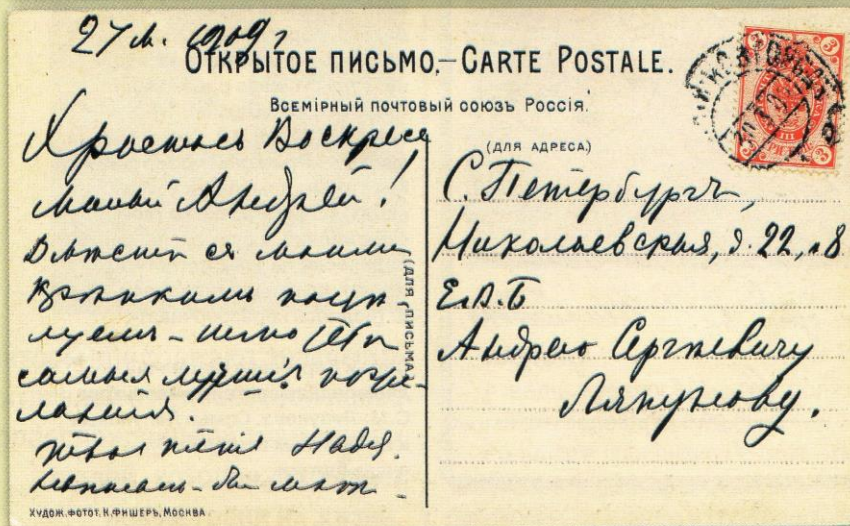 27 м. 1909 г
ОТКРЫТОЕ ПИСЬМО.—CARTE POSTALE.
Всемірный почтовый союзъ Россія.
Христосъ Воскресе
милый Андрей!
Вмѣстѣ съ моими
крѣпкимъ поцѣ
луемъ – шлю Тебѣ
самыя лучшія поже-
ланія.
твоя тётя Надя.
(ДЛЯ ПИСЬМА)
(ДЛЯ АДРЕСА)
С. Петербургъ,
Николаевская, д. 22, 8
Е.В.Б
Андрею Сергѣевичу
Ляпунову.
3 3
3 3
ХУДОЖ. ФОТОТ. К. ФИШЕРЪ, МОСКВА